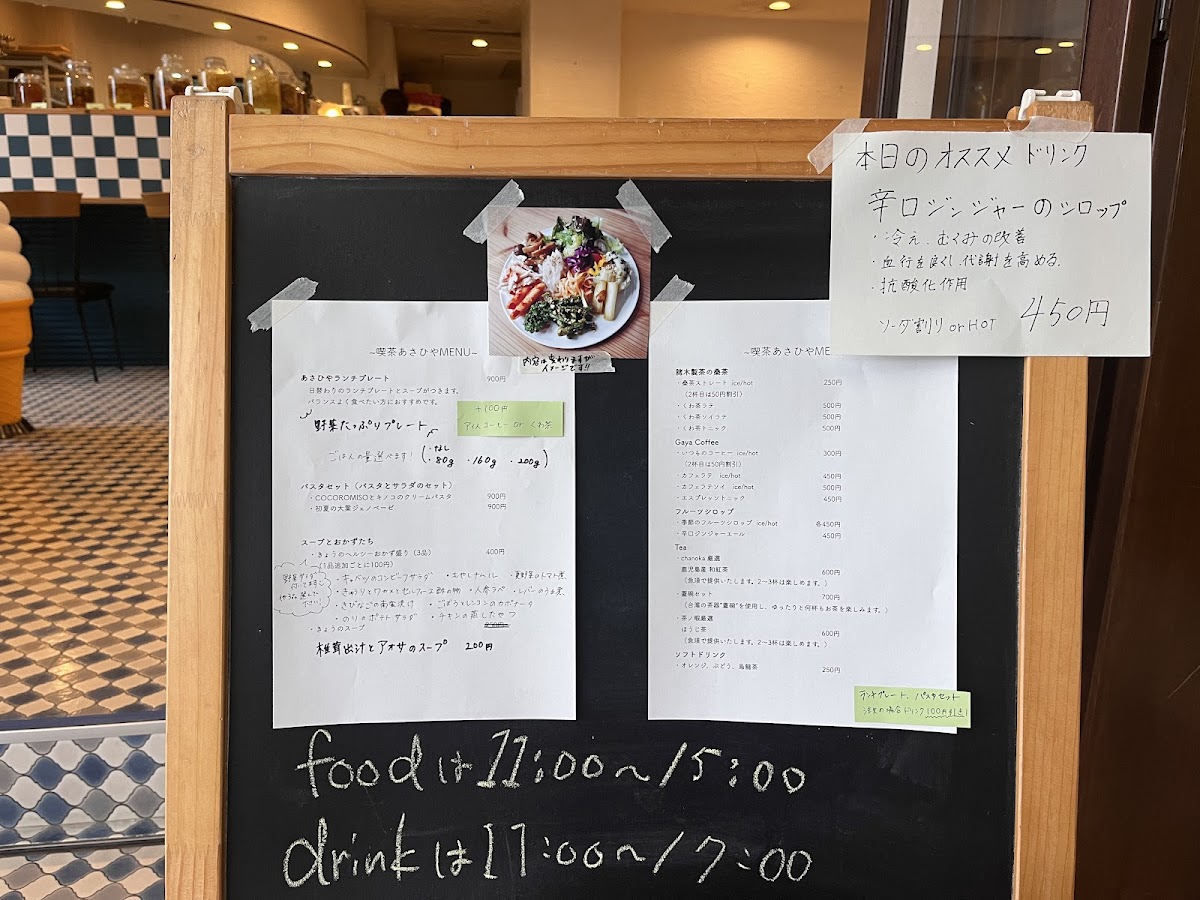 本日のオススメドリンク
辛口ジンジャーのシロップ
・冷え、むくみの改善
・血行を良くし、代謝を高める。
・抗酸化作用
ソーダ割り or HOT 450円
内容は変わりますが
イメージです!!
~喫茶あさひやMENU~
あさひやランチプレート 900円
日替わりのランチプレートとスープがつきます。
バランスよく食べたい方におすすめです。
+100円
アイスコーヒー or くわ茶
野菜たっぷりプレート
ごはんの量選べます! (・なし ・80g ・160g ・200g)
パスタセット（パスタとサラダのセット）
・COCOROMISOとキノコのクリームパスタ 900円
・初夏の大葉ジェノベーゼ 900円
スープとおかずたち
・きょうのヘルシーおかず盛り（3品） 400円
（1品追加ごとに100円）
・キャベツのコンビーフサラダ ・もやしナムル ・夏野菜のトマト煮
・きゅうりとワカメとセロリの 酢の物 ・人参ラペ ・レバーのうま煮
・きびなごの南蛮漬け ・ごぼうとレンコンのカポナータ
・のりのポテトサラダ ・チキンの蒸したやつ
・きょうのスープ
椎茸出汁とアオサのスープ 200円
~喫茶あさひやME
・桑茶ストレート ice/hot 250円
（2杯目は50円割引）
・くわ茶ラテ 500円
・くわ茶ソイラテ 500円
・くわ茶トニック 500円
Gaya Coffee
・いつものコーヒー ice/hot 300円
（2杯目は50円割引）
・カフェラテ ice/hot 450円
・カフェラテソイ ice/hot 500円
・エスプレッソトニック 450円
フルーツシロップ
・季節のフルーツシロップ ice/hot 各450円
・辛口ジンジャーエール 450円
Tea
・chanoka 厳選
鹿児島産 和紅茶 600円
（急須で提供いたします。2～3杯は楽しめます。）
・蓋碗セット 700円
（台湾の茶器“蓋碗”を使用し、ゆったりと何杯もお茶を楽しみます。）
・茶ノ椵厳選
ほうじ茶 600円
（急須で提供いたします。2～3杯は楽しめます。）
ソフトドリンク
・オレンジ、ぶどう、烏龍茶 250円
ランチプレート、パスタセット
注文の場合ドリンク100円引き!
foodは11:00～15:00
drinkは11:00～17:00